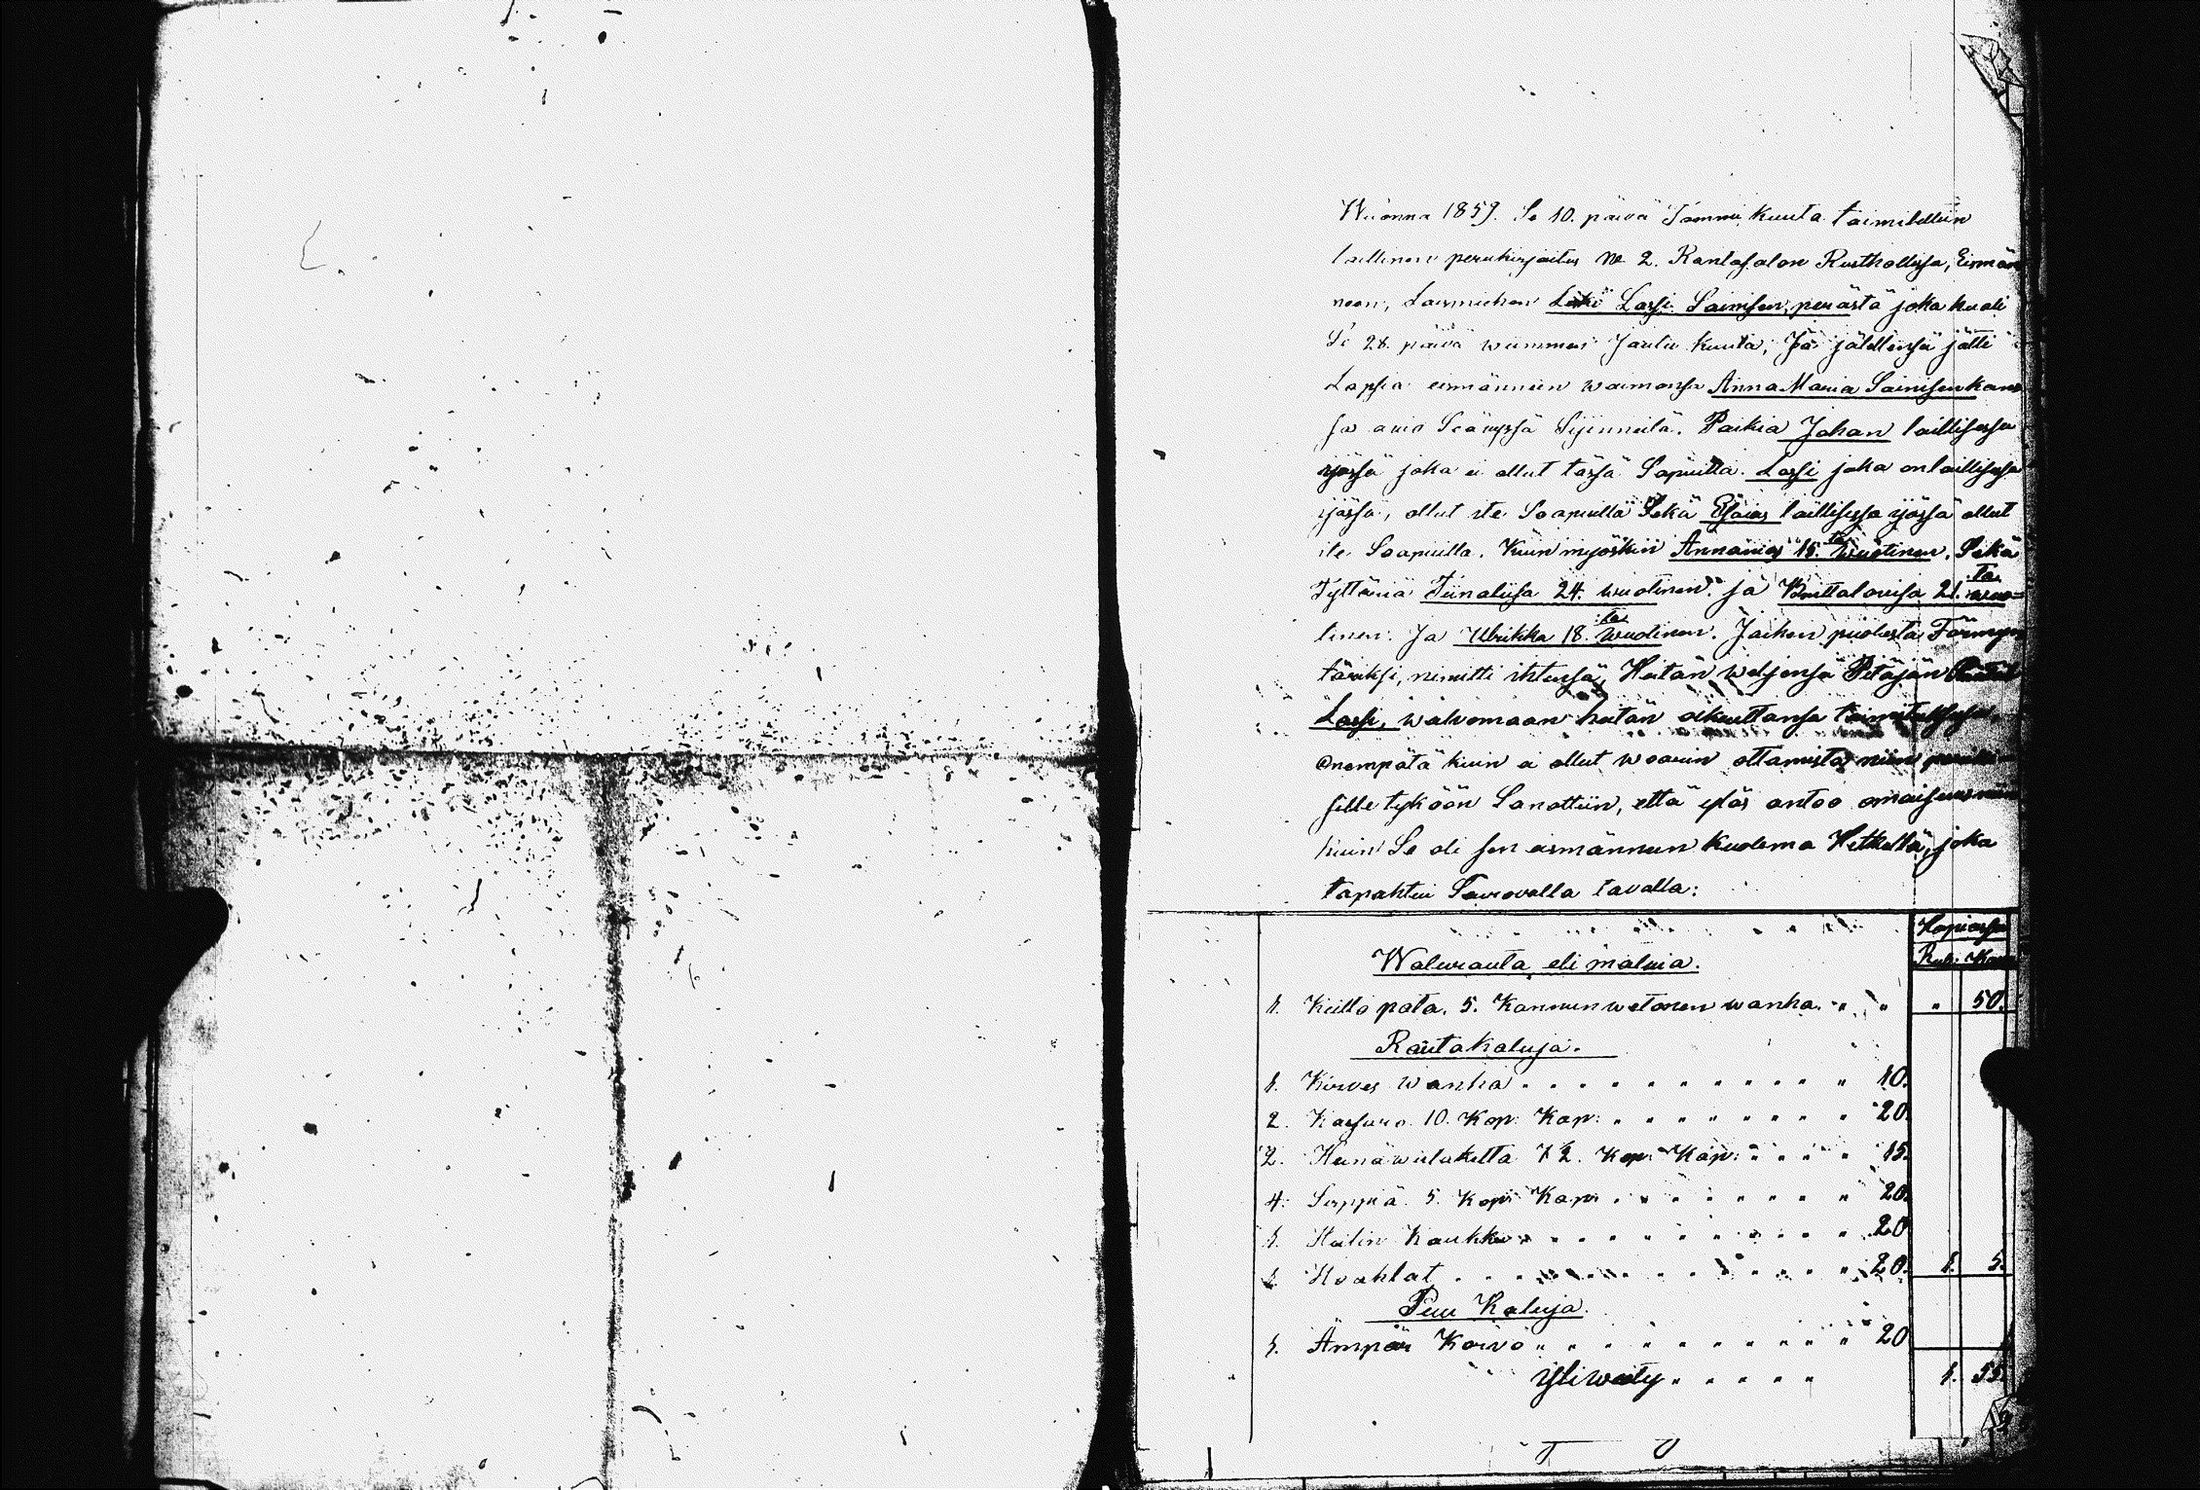 Wuonna 1859. Se 10. päivä Tammi kuuta toimitettiin
laillinen perukirjoitus No 2. Rantasalon Rusthollissa, Eismän
neen, Lausmiehen Lassi Sainisen, perästä joka kuoli
Se 28. päivä wiimmes Joulu kuuta, Ja jälellensä jätti
Lapsia eismännien waimonsa Anna Maria Sainisen kans
sa awio Seätyssä Syinneitä. Poikia Johan laillisessa
ijässä joka ei ollut tässä Sapuilla. Lassi joka on laillisessa
ijässä, ollut ite Soapuilla Sekä Esaias laillisessa ijässä ollut
ite Soapuilla. Kuin myöskin Annanias 15.ta wuotinen, Sekä
Tyttäriä Tiinaliisa 24. wuotinen. ja Briitalouisa 21.ta wuo=
tinen. Ja Ulrikka 18.ta wuotinen. Joihen puolesta Förmyn
täräksi, nimitti ihtensä, Heitän weljensä Pitäjän
Lassi, walvomaan heitän oikeuttansa toimituksessa.
Enempätä kuin ei ollut woarin ottamista, niin
sille tyköön Sanottiin, että ylös antoo omaisuus niin
kuin Se oli sen eismännien kuolema Hetkellä, joka
tapahtui Seurovalla tavalla:
Hopiassa
Walurauta eli maluia. Rub. Kop.
1. Keitto pata. 5. Kannun wetonen wanha. " " " 50.
Rautakaluja.
1. Kirves wanha . . . . . . . . . . " 10.
2. Kassara 10. Kop. Kap. . . . . . . . " 20.
2. Heinäwiitaketta 7 1/2. Kop. Kap. . . . . " 15.
4. Sirppiä. 5. Kop. Kap. . . . . . . . " 20.
1. Heilin Kaukko . . . . . . . . . . 20
1. Hoahlat . . . . . . . . . . . " 20. 1. 5.
Puu Kaluja.
1. Ämpär Korvo . . . . . . . . . . " 20
Yliweity . . . . . 1. 55.